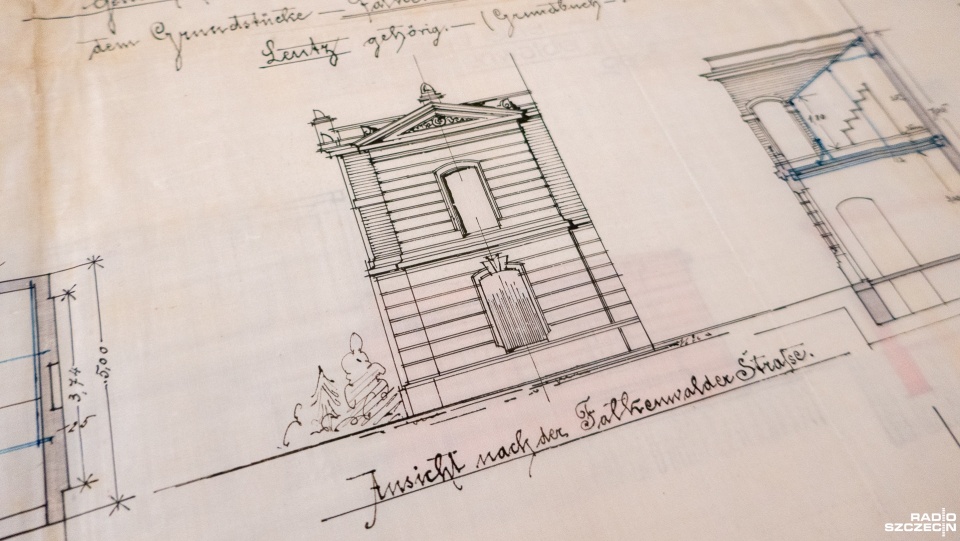 dem Grundstücke —
Lentz gehörig. — (Grundbuch —
1,80
3,74
5,00
Ansicht nach der Falkenwalder Straße.
RADIO
SZCZECIN